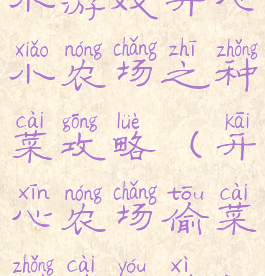 游戏
xiǎo nóng chǎng zhī zhǒng
小农场之种
cài gōng lüè kāi
菜攻略（开
xīn nóng chǎng tōu cài
心农场偷菜
zhǒng cài yóu xì